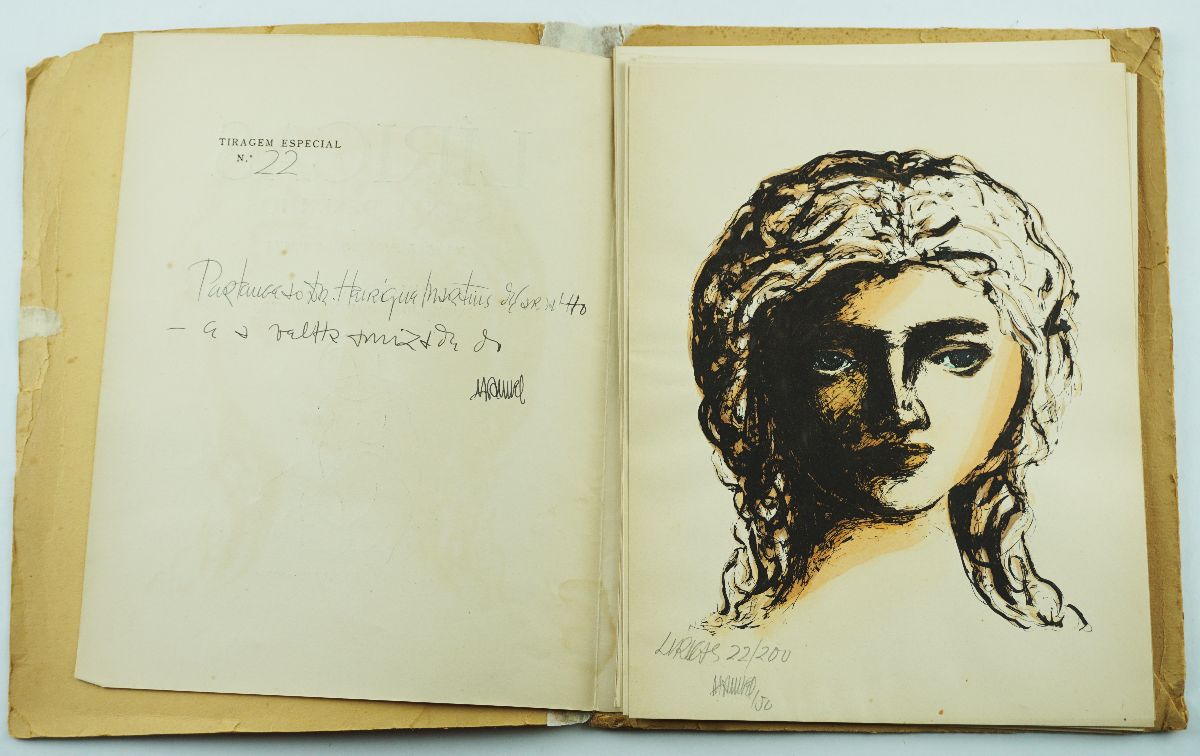 TIRAGEM ESPECIAL
N.º 22
Pertence ao Dr. Henrique Martins de Carvalho
— e a velha amizade do
Manuel
LIRICAS 22/200
Manuel /50
LIRICAS